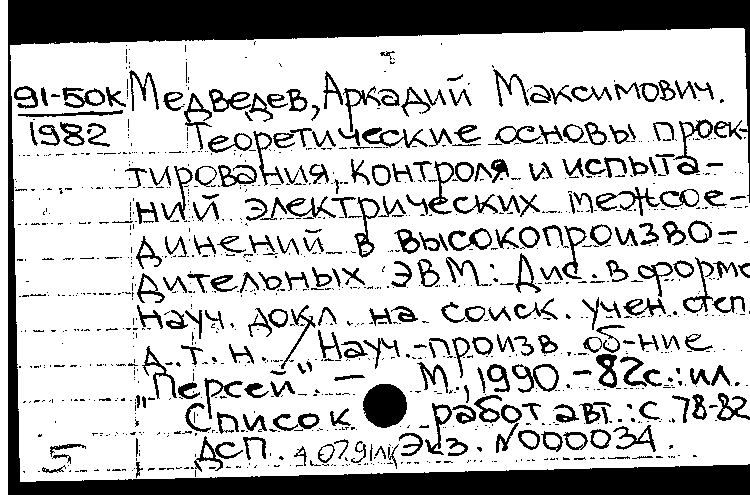 91-50к Медведев, Аркадий Максимович.
1982 Теоретические основы проек-
тирования, контроля и испыта-
ний электрических межсое-
динений в высокопроизво-
дительных ЭВМ: Дис. в форме
науч. докл. на соиск. учен. степ.
д.т.н. / Науч.-произв. об-ние
„Персей". — М., 1990. - 82с.: ил.
Список работ авт.: с 78-82
5 ДСП. 4.07.91 Экз. N000034.